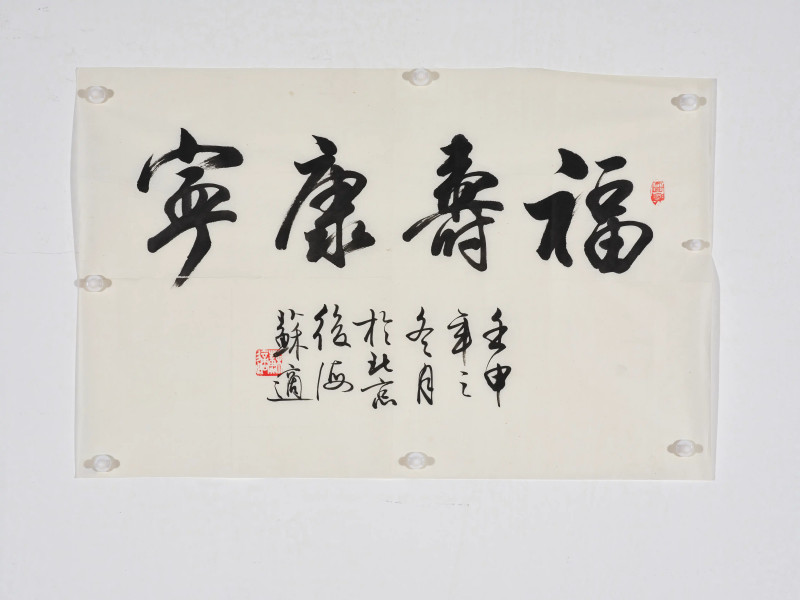 福壽康寧
壬申
年之
冬月
於北京
後海
蘇適